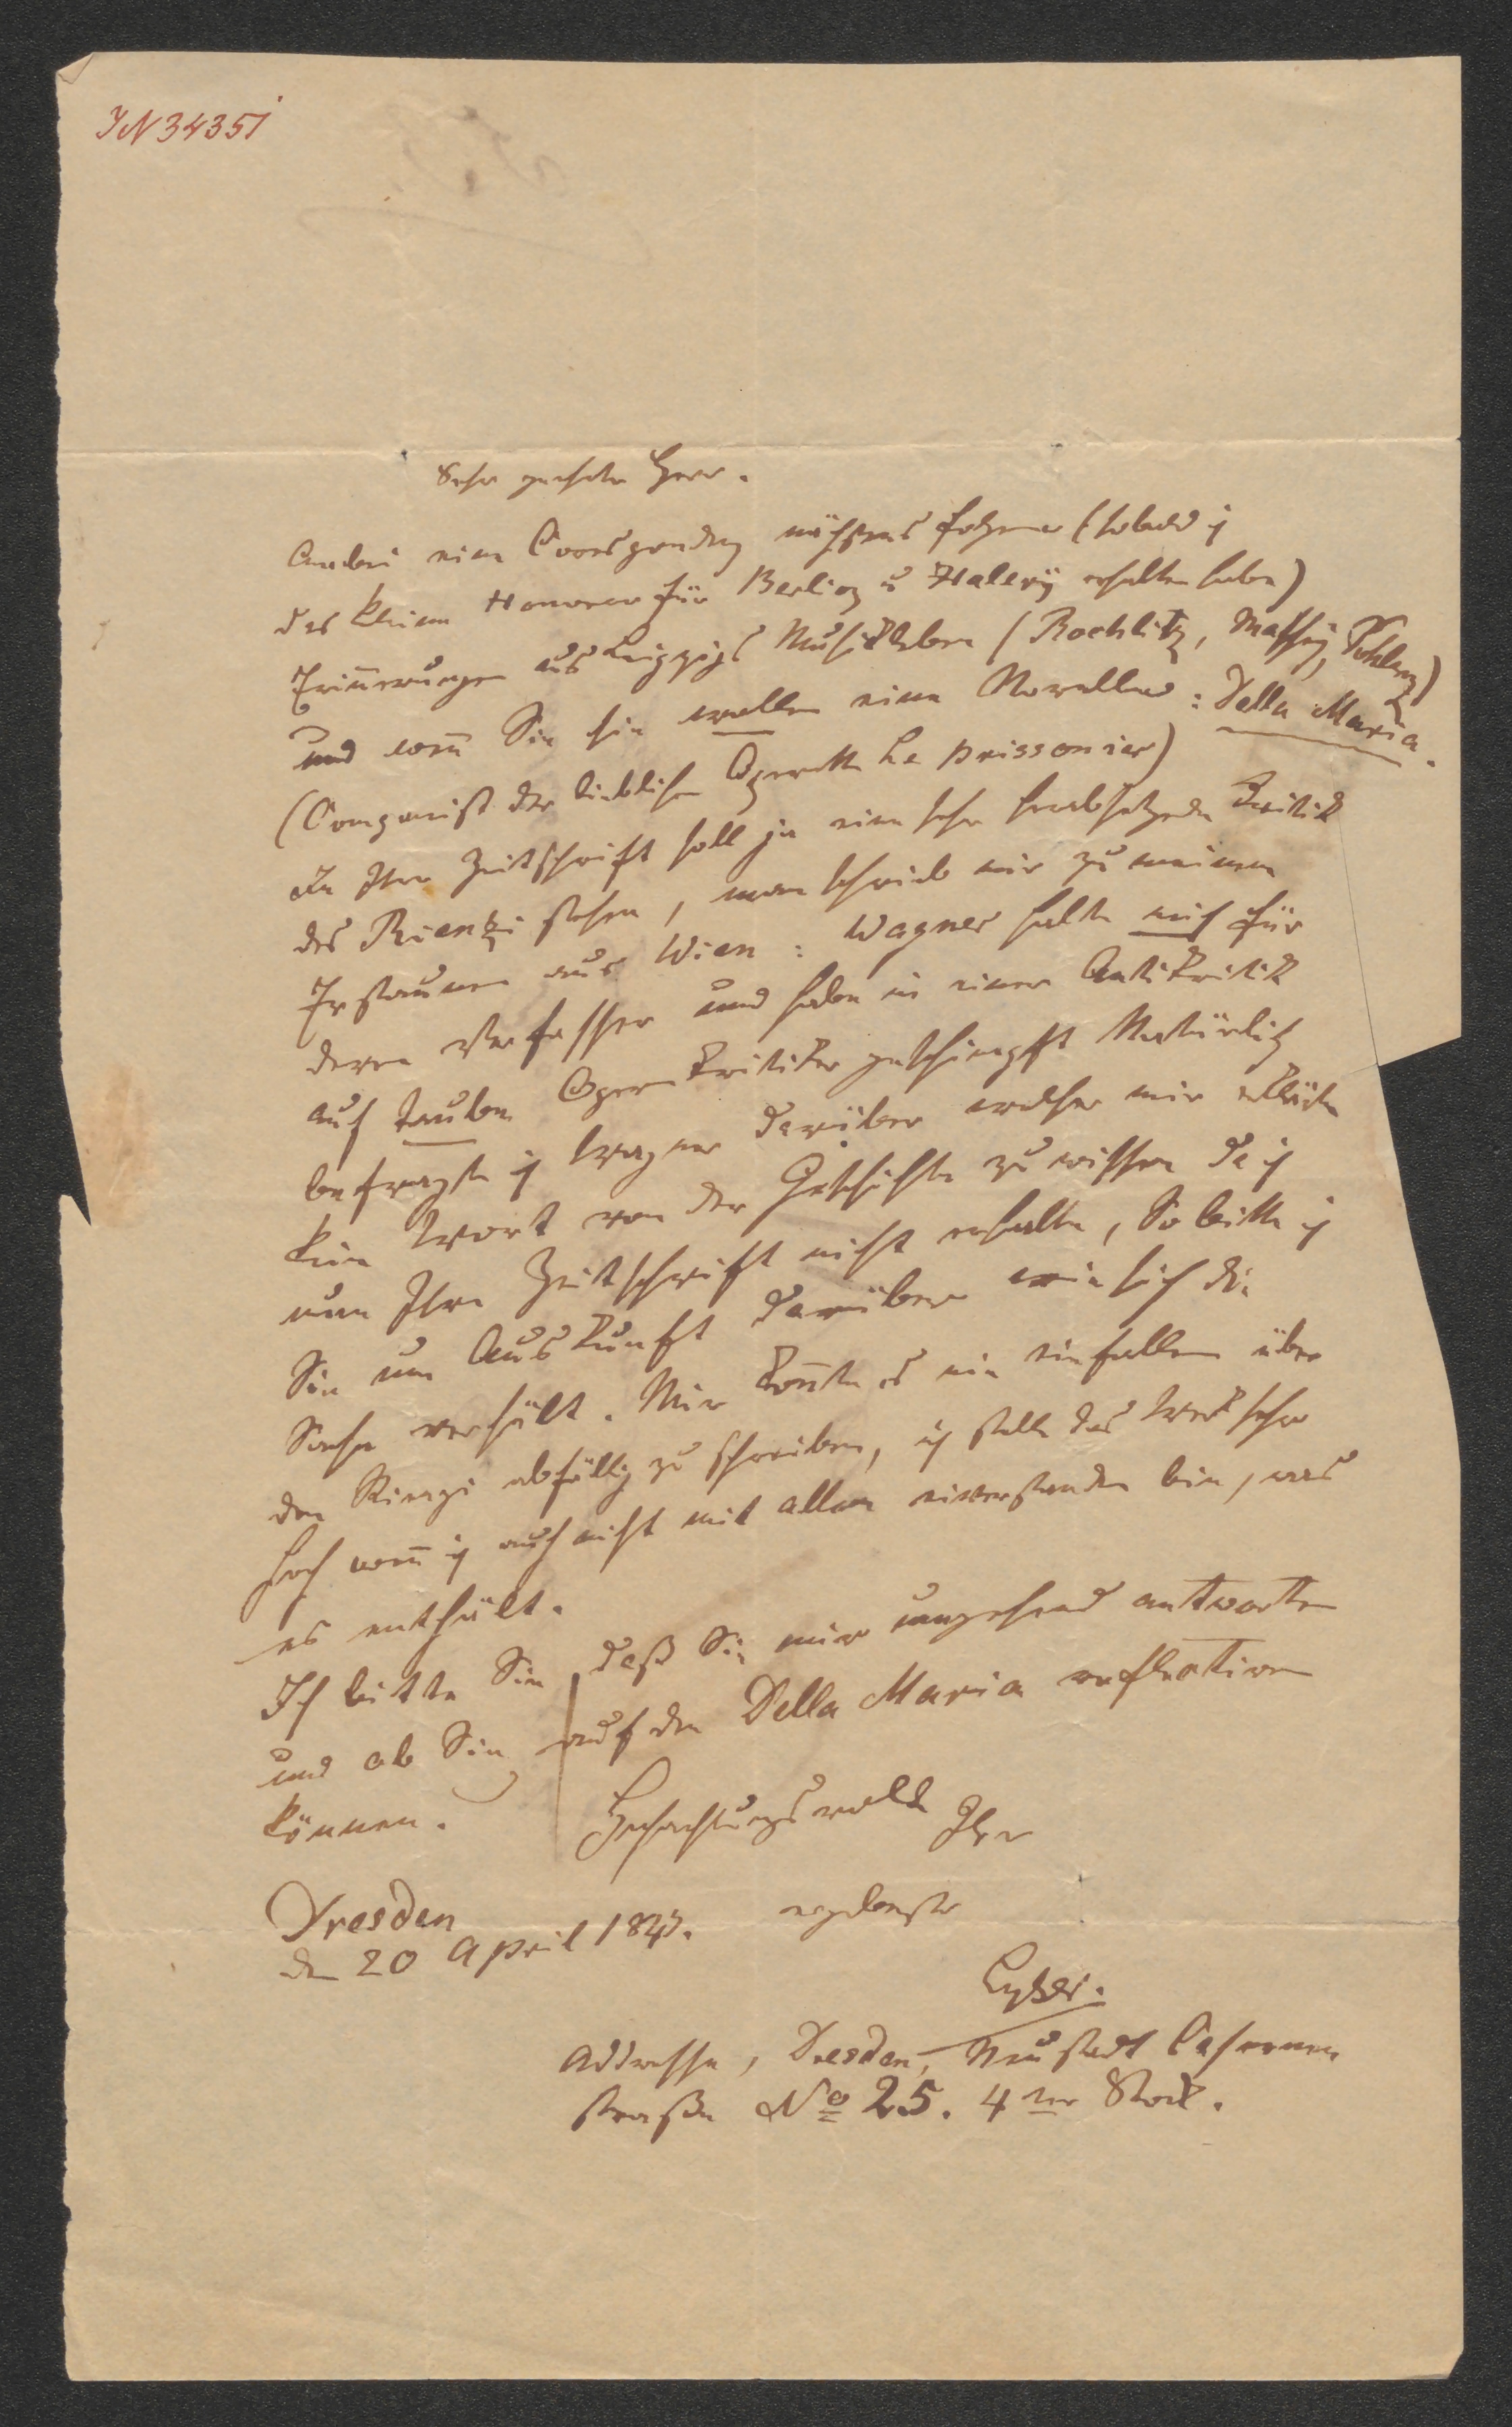 IN 34351
Sehr geehrter Herr.
Anbei eine Corespondenz nächstens folgen (sobald ich
das kleine Honorar für Berlioz u Halevÿ erhalten habe)
Erinnerungen aus Leipzigs Musikleben (Rochlitz, Mathäi, Pohlenz)
und wenn Sie sie wollen eine Novelle: Della Maria.
(Componist der lieblichen Operette Le prissonier)
In Ihrer Zeitschrift soll ja eine sehr herabsetzende Kritik
des Rienzi stehen, man schrieb mir zu meinem
Erstaunen aus Wien: Wagner halte mich für
deren Verfasser und habe in einer Antikritik
auf tauben Opernkritiker geschimpft Natürlich
befragte ich Wagner darüber welcher mir erklärte
kein Wort von der Geschichte zu wissen da ich
nun Ihre Zeitschrift nicht erhalte, So bitte ich
Sie um Auskunft darüber wie sich die
Sache verhält. Mir konnte es nie einfallen über
den Rienzi abfällig zu schreiben, ich stelle das Werk sehr
hoch wenn ich auch nicht mit allem einverstanden bin, was
es enthält.
Ich bitte Sie daß Sie mir umgehend antworten
und ob Sie auf den Della Maria reflectiren
können. Hochachtungsvoll Ihr
Dresden ergebenster
den 20 April 1843.
Lyser.
Addresse, Dresden, Neustadt Casernen
straße No 25. 4ter Stock.